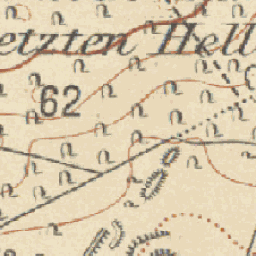 etzten Hell
62